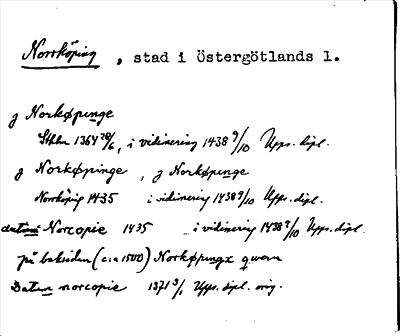 Norrköping, stad i Östergötlands l.
J Norkøpunge
Sthlm 1364 28/6, i vidimering 1438 9/10 Upps. dipl.
J Norkøpinge, J Norkøpunge
Norrköping 1435 i vidimering 1438 9/10 Upps. dipl.
datum Norcopie 1435 i vidimering 1438 9/10 Upps. dipl.
på baksidan (c:a 1500) Norkøpungx qwern
Datum norcopie 1371 3/1 Upps. dipl. orig.